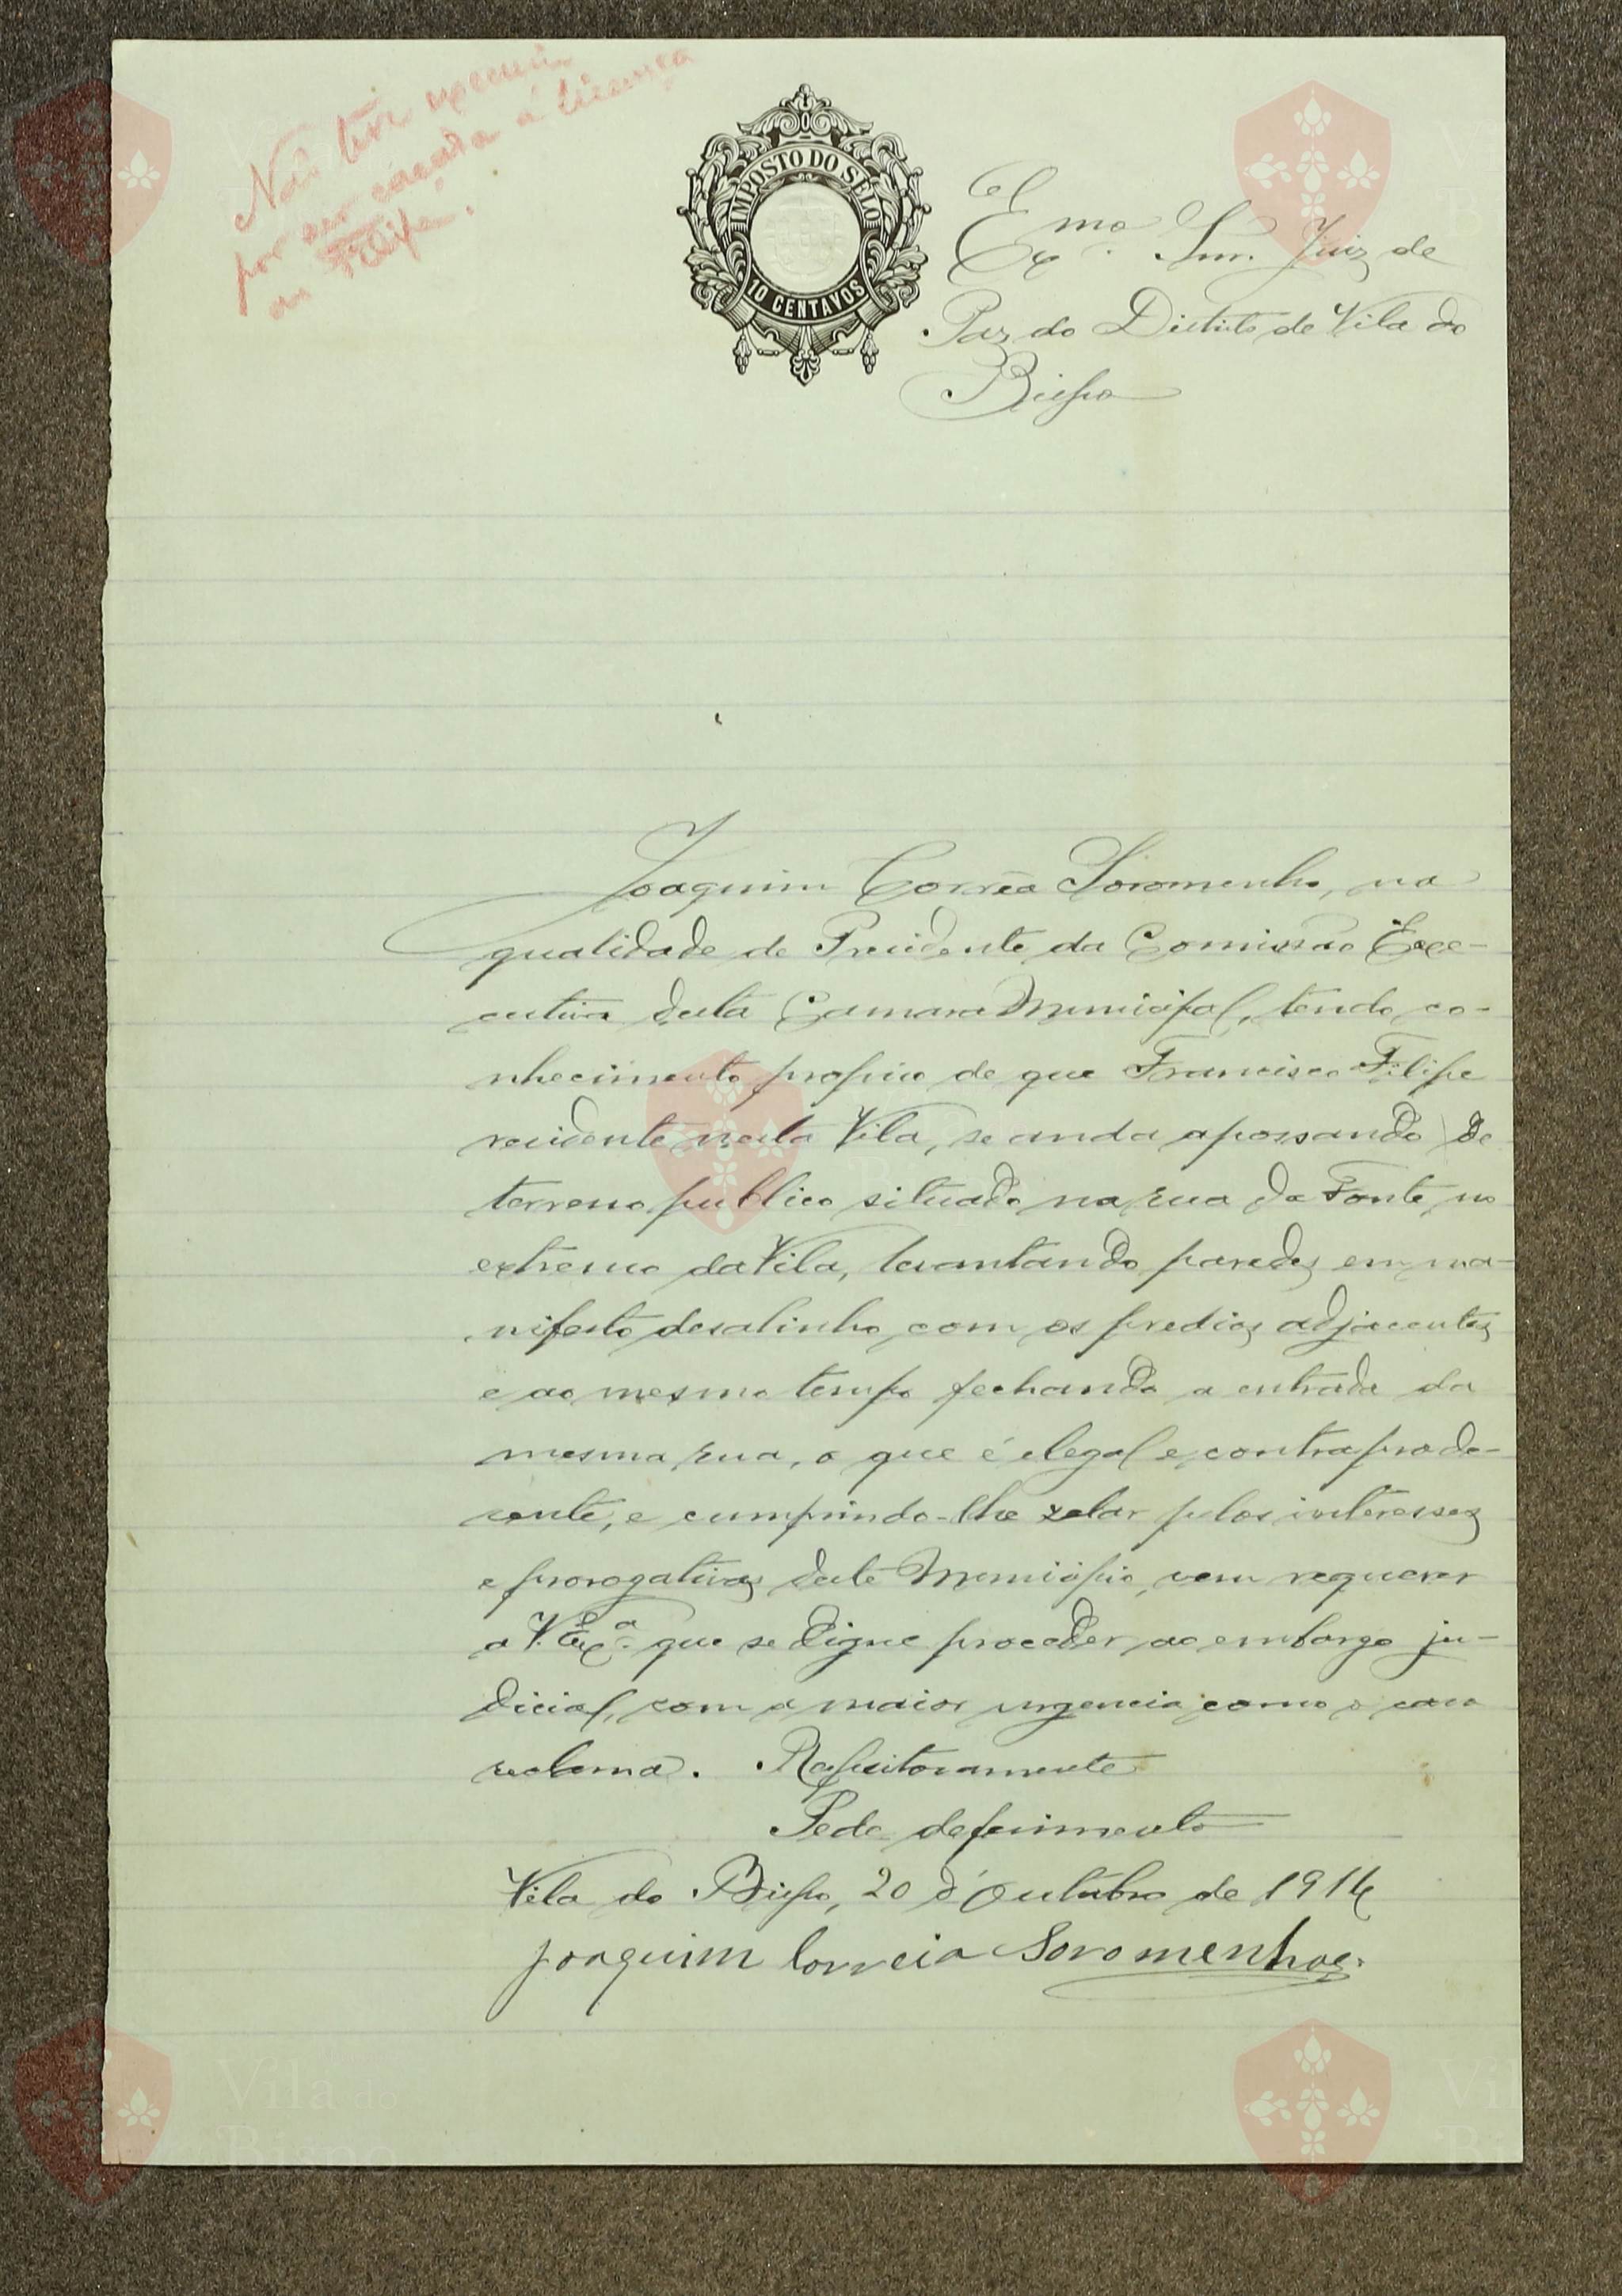 Não teve execução
por ser caçada a licença
ao Filipe.
IMPOSTO DO SELO
10 CENTAVOS
Exmo. Snr. Juiz de
Paz do Distrito de Vila do
Bispo
Joaquim Corrêa Soromenho, na
qualidade de Presidente da Comissão Exe-
cutiva desta Camara Municipal, tendo co-
nhecimento proprio de que Francisco Filipe
residente nesta Vila, se anda apossando de
terreno publico situado na rua da Fonte, no
extremo da Vila, levantando paredes em ma-
nifesto desalinho com os predios adjacentes
e ao mesmo tempo fechando a entrada da
mesma rua, o que é ilegal e contraprodu-
cente, e cumprindo-lhe zelar pelos interesses
e prorogativas deste Municipio, vem requerer
a V. Exª. que se digne proceder ao embargo ju-
dicial, com a maior urgencia como o caso
reclama. Respeitosamente
Pede deferimento
Vila do Bispo, 20 d'Outubro de 1914
Joaquim Correia Soromenho
Vila do
Bispo